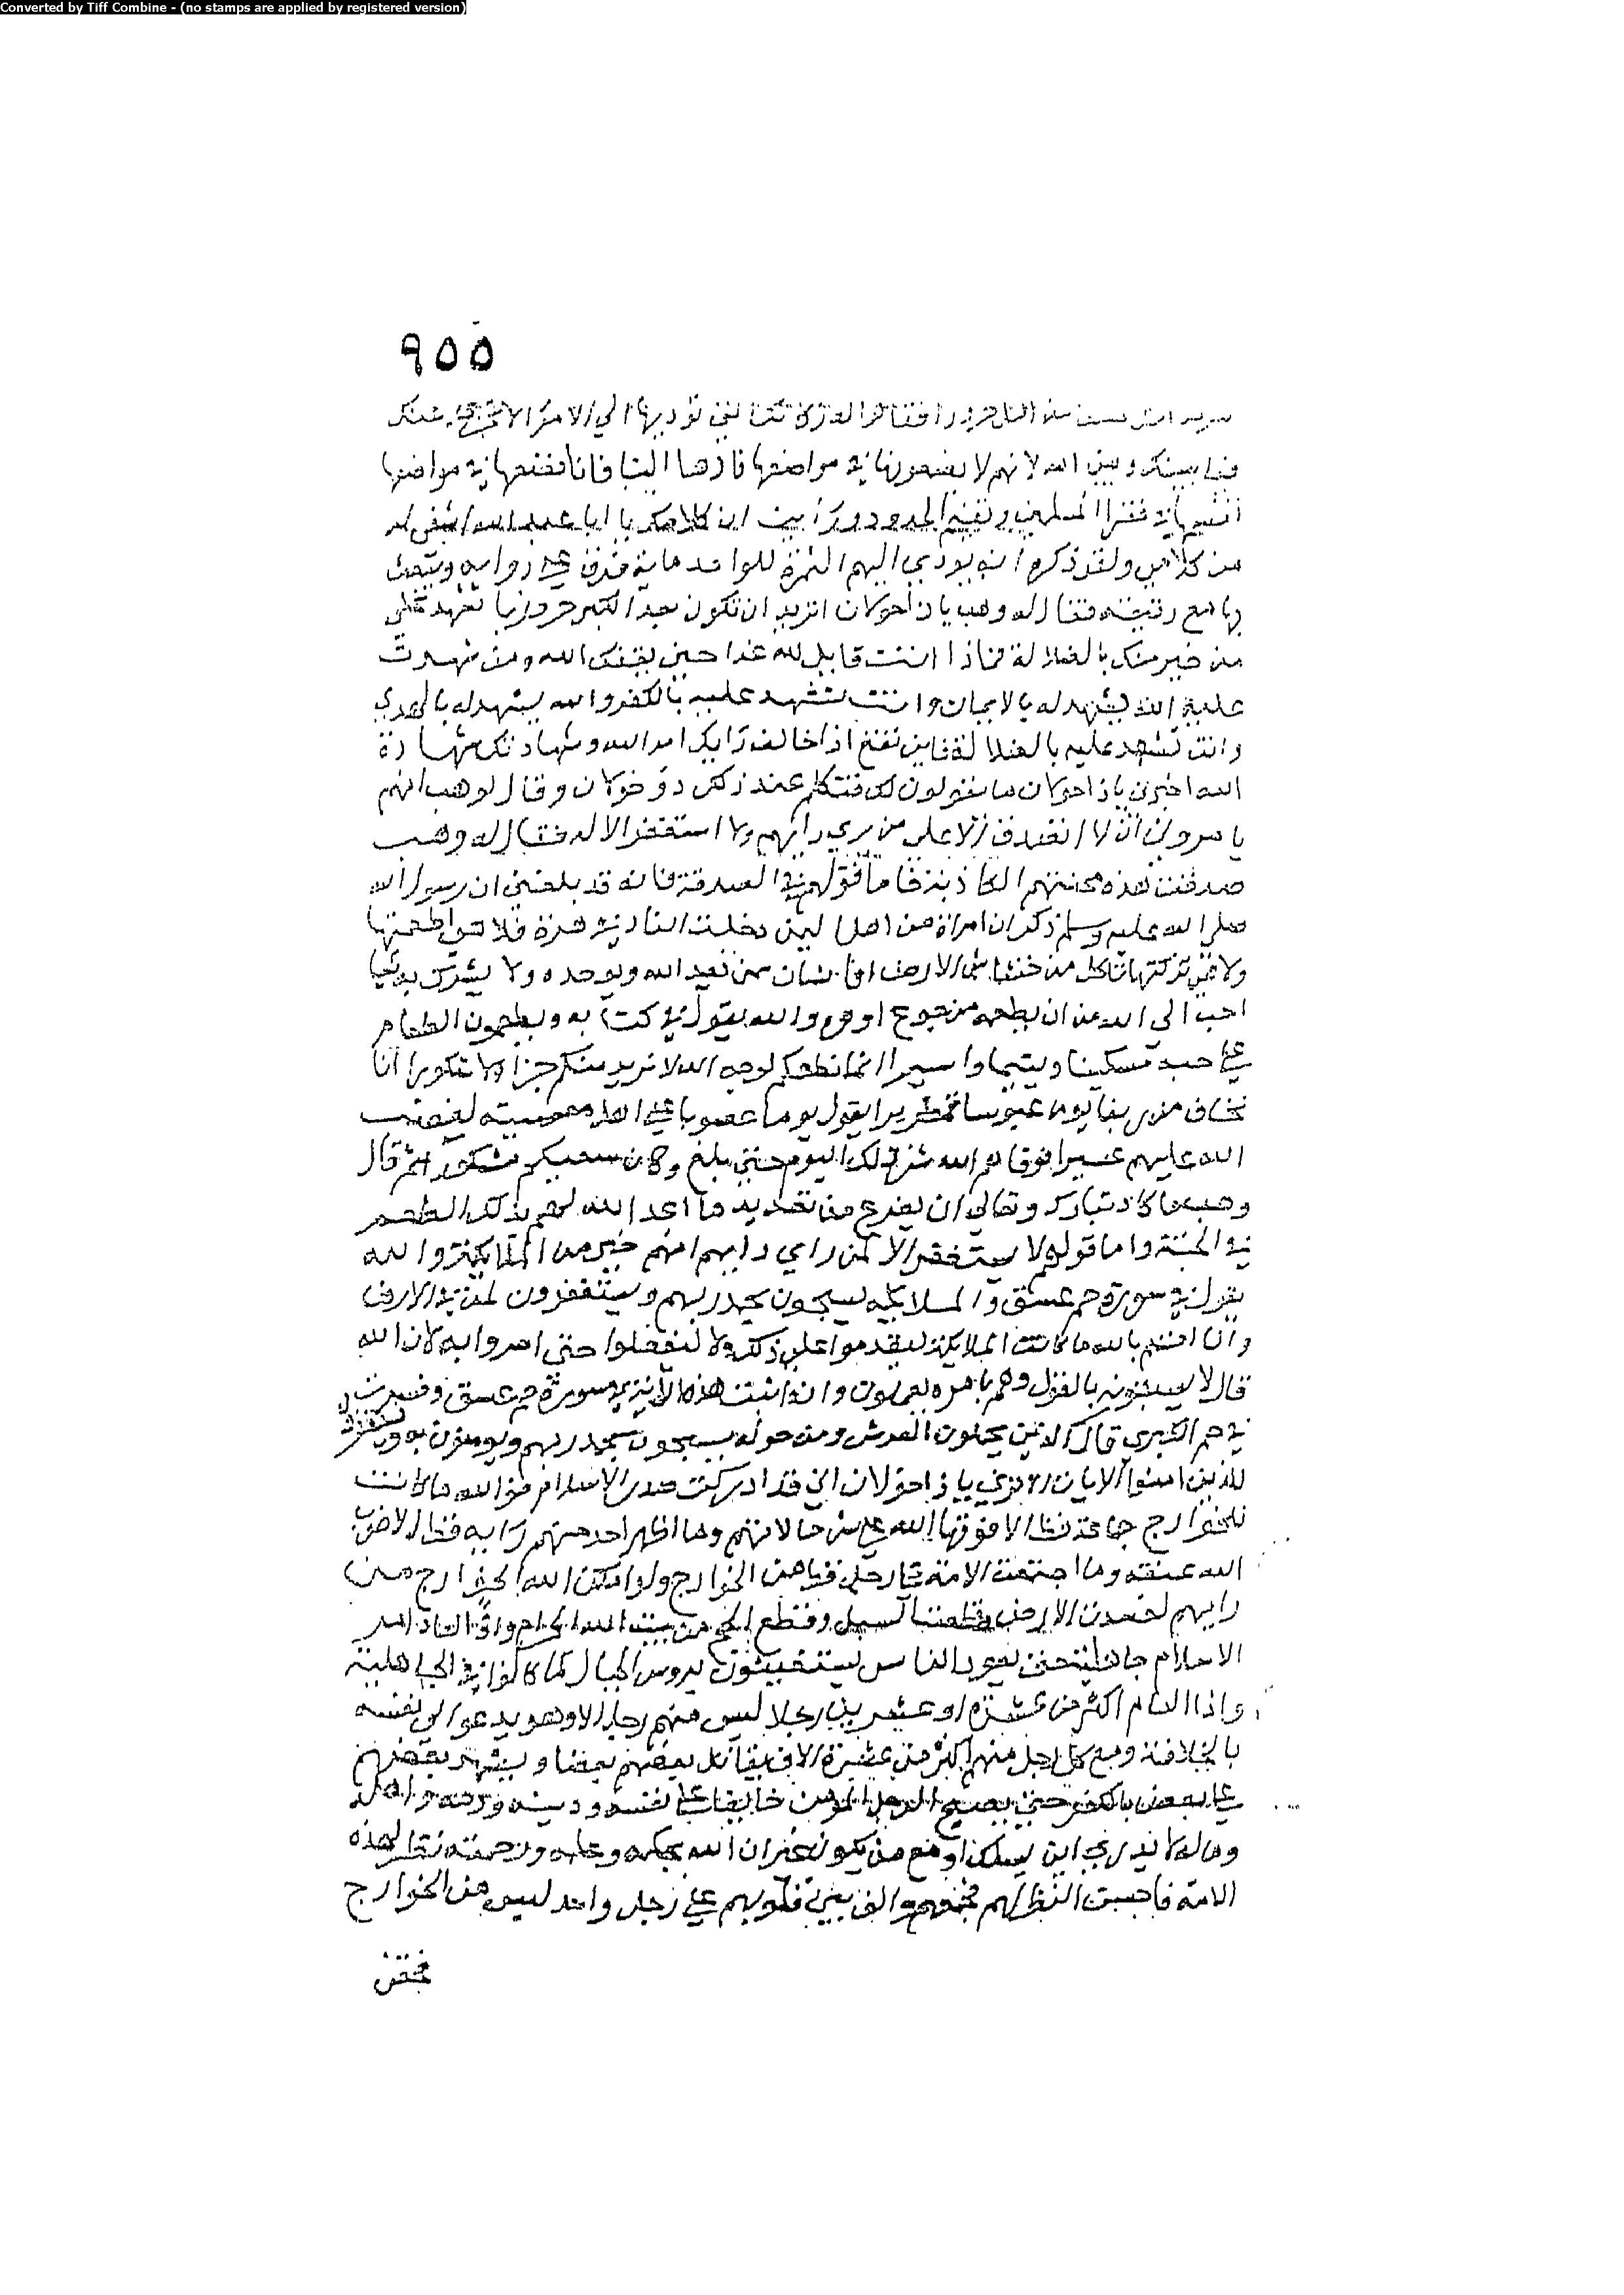 Converted by Tiff Combine - (no stamps are applied by registered version)
٩٥٥
الزكاة التي تؤديها الي الامرا لا تجزي عنك
فيما بينك وبين الله لانهم لا يضعونها في مواضعها فادها الينا فانا نضعها في مواضعها
نقسمها في فقرا المسلمين ونقيم الحدود ورايت ان كلامك يا ابا عبد الله اشفى له
من كلامي ولقد ذكر انه يودي اليهم الثمرة للواحد ماية فرق على دوابه ويبعث
بها مع رقيقه فقال له وهب يا ذا خولان اتريد ان تكون بعد الكبر حروريا تشهد على
من خير منك بالضلالة فماذا انت قايل لله غدا حين يقفك الله ومن شهدت
عليه الله يشهد له بالايمان وانت تشهد عليه بالكفر والله يشهد له بالهدي
وانت تشهد عليه بالضلالة فاين تقع اذا خالف رايك امر الله وشهادتك شهادة
الله اخبرني يا ذا خولان ما يقولون لك فتكلم عند ذلك ذو خولان وقال لوهب انهم
يامروني ان لا اتصدق الا على من يري رايهم ولا استغفر الا له فقال له وهب
صدقت هذه محنتهم الكاذبة فاما قولهم في الصدقة فانه قد بلغني ان رسول الله
صلى الله عليه وسلم ذكر ان امراة من اهل اليمن دخلت النار في هرة فلا هي اطعمتها
ولا هي تركتها تاكل من خشاش الارض افانسان ممن يعبد الله ويوحده ولا يشرك به شيا
احب الي الله من ان يطعمه من جوع او هرة والله يقول في كتابه ويطعمون الطعام
على حبه مسكينا ويتيما واسيرا انما نطعمكم لوجه الله لا نريد منكم جزا ولا شكورا انا
نخاف من ربنا يوما عبوسا قمطريرا يقول يوما عصوبا على اهل معصيته لغضب
الله عليهم عسيرا فوقاهم الله شر ذلك اليوم حتى بلغ وكان سعيكم مشكورا ثم قال
وهب ما كاد تبارك وتعالى ان يفرغ من تعديد ما اعد الله لهم بذلك الطعم
في الجنة واما قولهم لا يستغفر الا لمن راي رايهم اهم خير من الملايكة والله
يقول في سورة حم عسق والملايكة يسبحون بحمد ربهم ويستغفرون لمن في الارض
وانا اقسم بالله ما كانت الملايكة ليقدموا على ذلك ولا ليفعلوا حتى امروا به لان الله
قال لا يسبقونه بالقول وهم بامره يعملون وانه اثبتت هذه الاية في سورة حم عسق وفسرت
في حم الكبري قال الذين يحملون العرش ومن حوله يسبحون بحمد ربهم ويومنون به ويستغفرون
للذين امنوا الايات الا تري يا ذا خولان اني قد ادركت صدر الاسلام فوالله ما كانت
للخوارج جماعة قط الا فرقها الله على شر حالاتهم وما اظهر احد منهم رايه قط الا ضرب
الله عنقه وما اجتمعت الامة على رجل قط من الخوارج ولو امكن الله الخوارج من
رايهم لفسدت الارض وقطعت السبل وقطع الحج من بيت الله الحرام واذا لعاد امر
الاسلام جاهلية حتى يعود الناس يستغيثون بروس الجبال كما كانوا في الجاهلية
واذا لقام اكثر من عشرة او عشرين رجلا ليس منهم رجل الا وهو يدعو الي نفسه
بالخلافة ومع كل رجل منهم اكثر من عشرة الاف يقاتل بعضهم بعضا ويشهد بعضهم
على بعض بالكفر حتى يصبح الرجل المومن خايفا على نفسه ودينه ودمه واهله
وماله لا يدري اين يسلك او مع من يكون غير ان الله بحكمه وعلمه ورحمته نظر لهذه
الامة فاحسن النظر لهم فجمعهم والف بين قلوبهم على رجل واحد ليس من الخوارج
فحقن